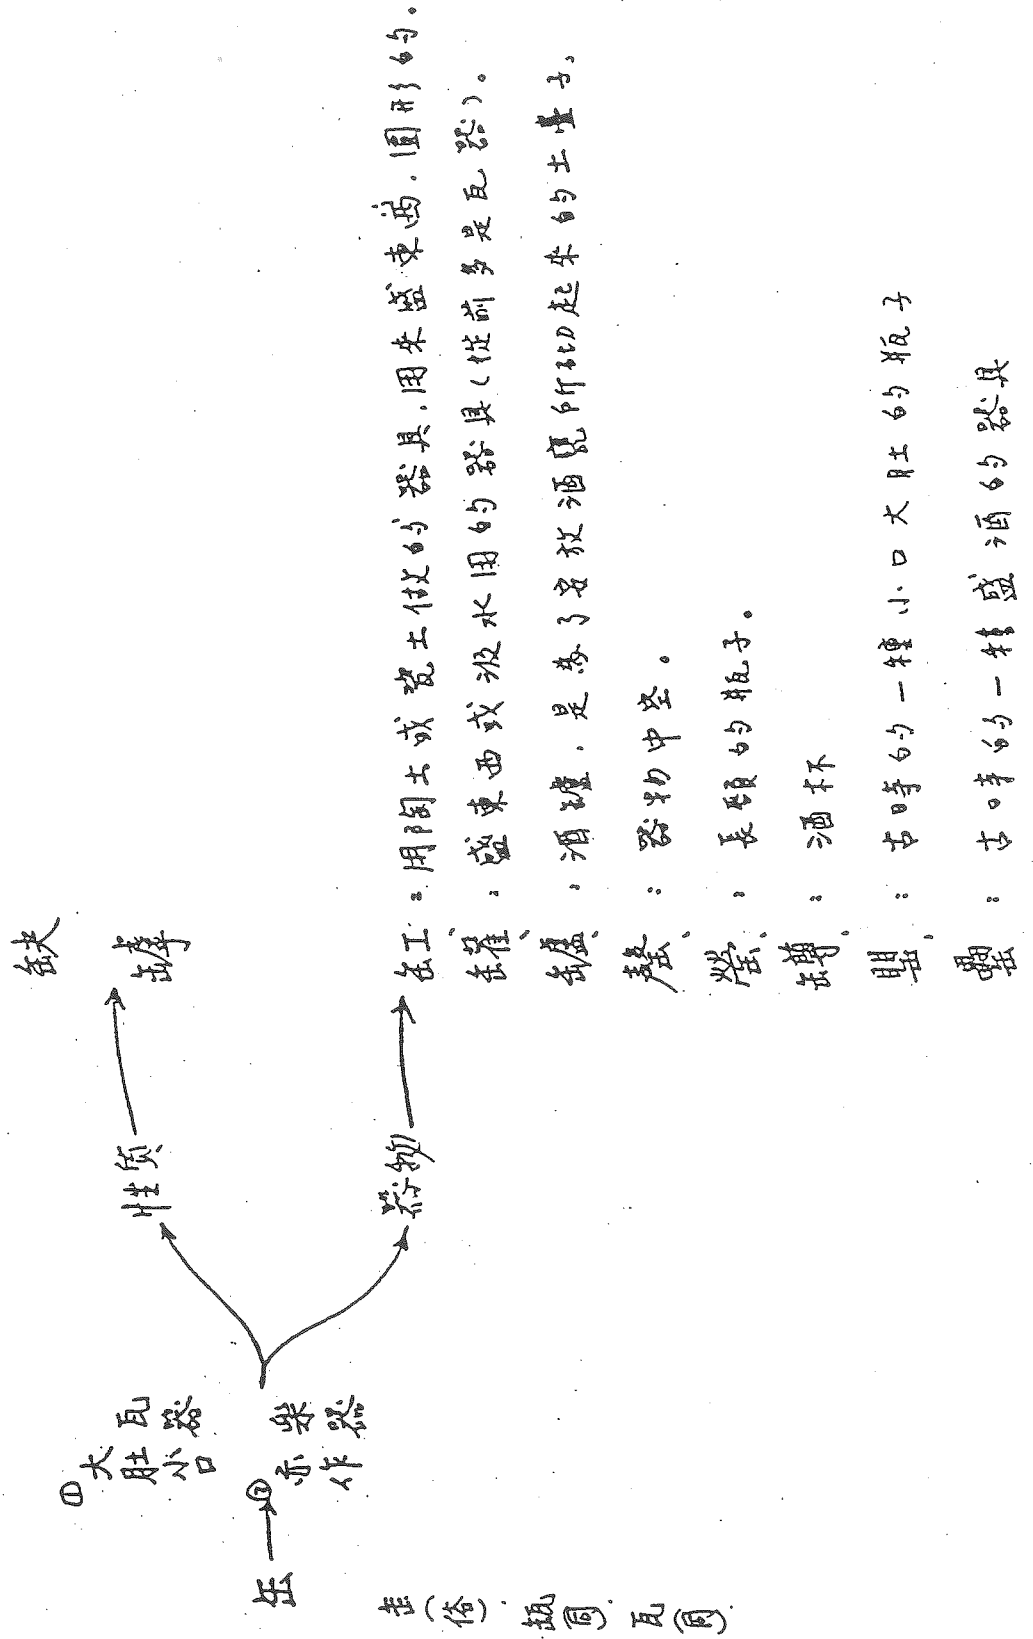 缶
缶(俗)、缻(同)、瓦(同)
①大肚小口瓦器
②亦作樂器
性质
缺
罅
器物
缸：用陶土或瓷土做的器具，用来盛東西，圓形的。
罐：盛東西或汲水用的器具(從前多是瓦器)。
罏：酒罏，是為了安放酒甕所砌起来的土臺子、
罄：器物中空。
罃：長頸的瓶子。
罇：酒杯
罌：古時的一種小口大肚的瓶子
罍：古時的一種盛酒的器具